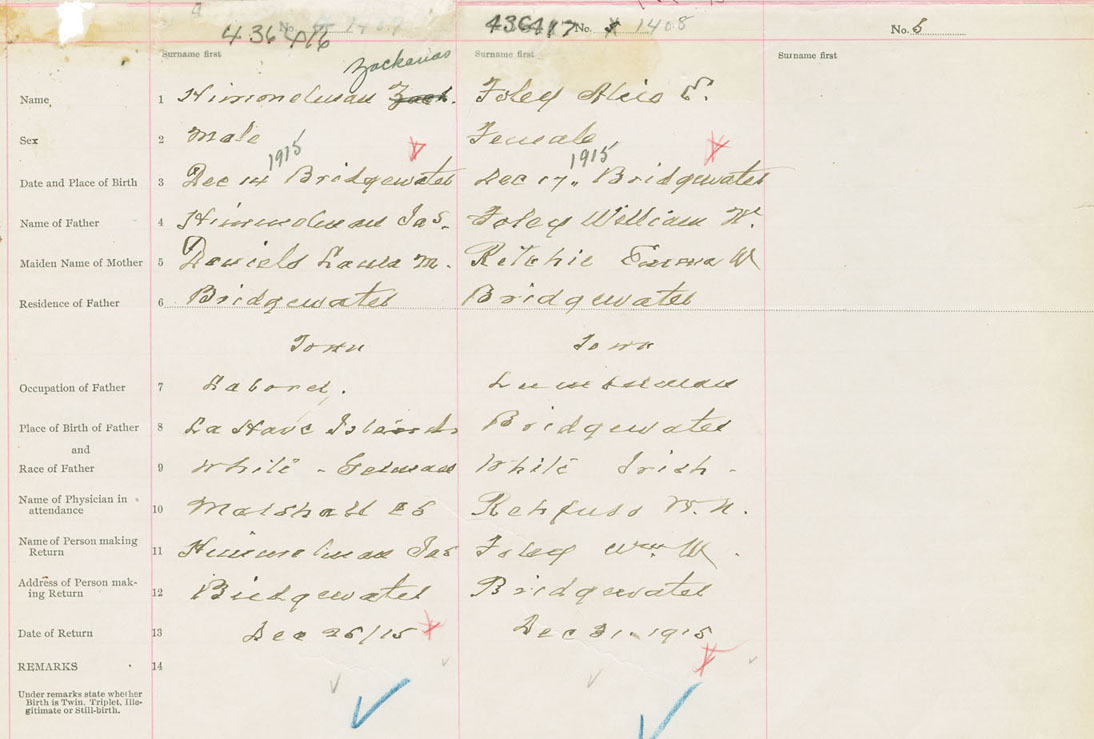 436416 No. 1408 436417 No. 1408 No. 5
Surname first Surname first Surname first
Zackarias
Name 1 Himmelman Zach. Foley Alis E.
Sex 2 Male Female
1915 1915
Date and Place of Birth 3 Dec 14 Bridgewater Dec 17 Bridgewater
Name of Father 4 Himmelman Jas. Foley William W.
Maiden Name of Mother 5 Daniels Laura M. Ritchie Emma W
Residence of Father 6 Bridgewater Bridgewater
Town Town
Occupation of Father 7 Laborer. Lumberman
Place of Birth of Father 8 La Have Islands Bridgewater
and
Race of Father 9 White - German White Irish -
Name of Physician in
attendance 10 Marshall Rehfuss W. N.
Name of Person making
Return 11 Himmelman Jas Foley Wm W.
Address of Person mak-
ing Return 12 Bridgewater Bridgewater
Date of Return 13 Dec 26/15 Dec 31. 1915
REMARKS 14
Under remarks state whether
Birth is Twin, Triplet, Ille-
gitimate or Still-birth.